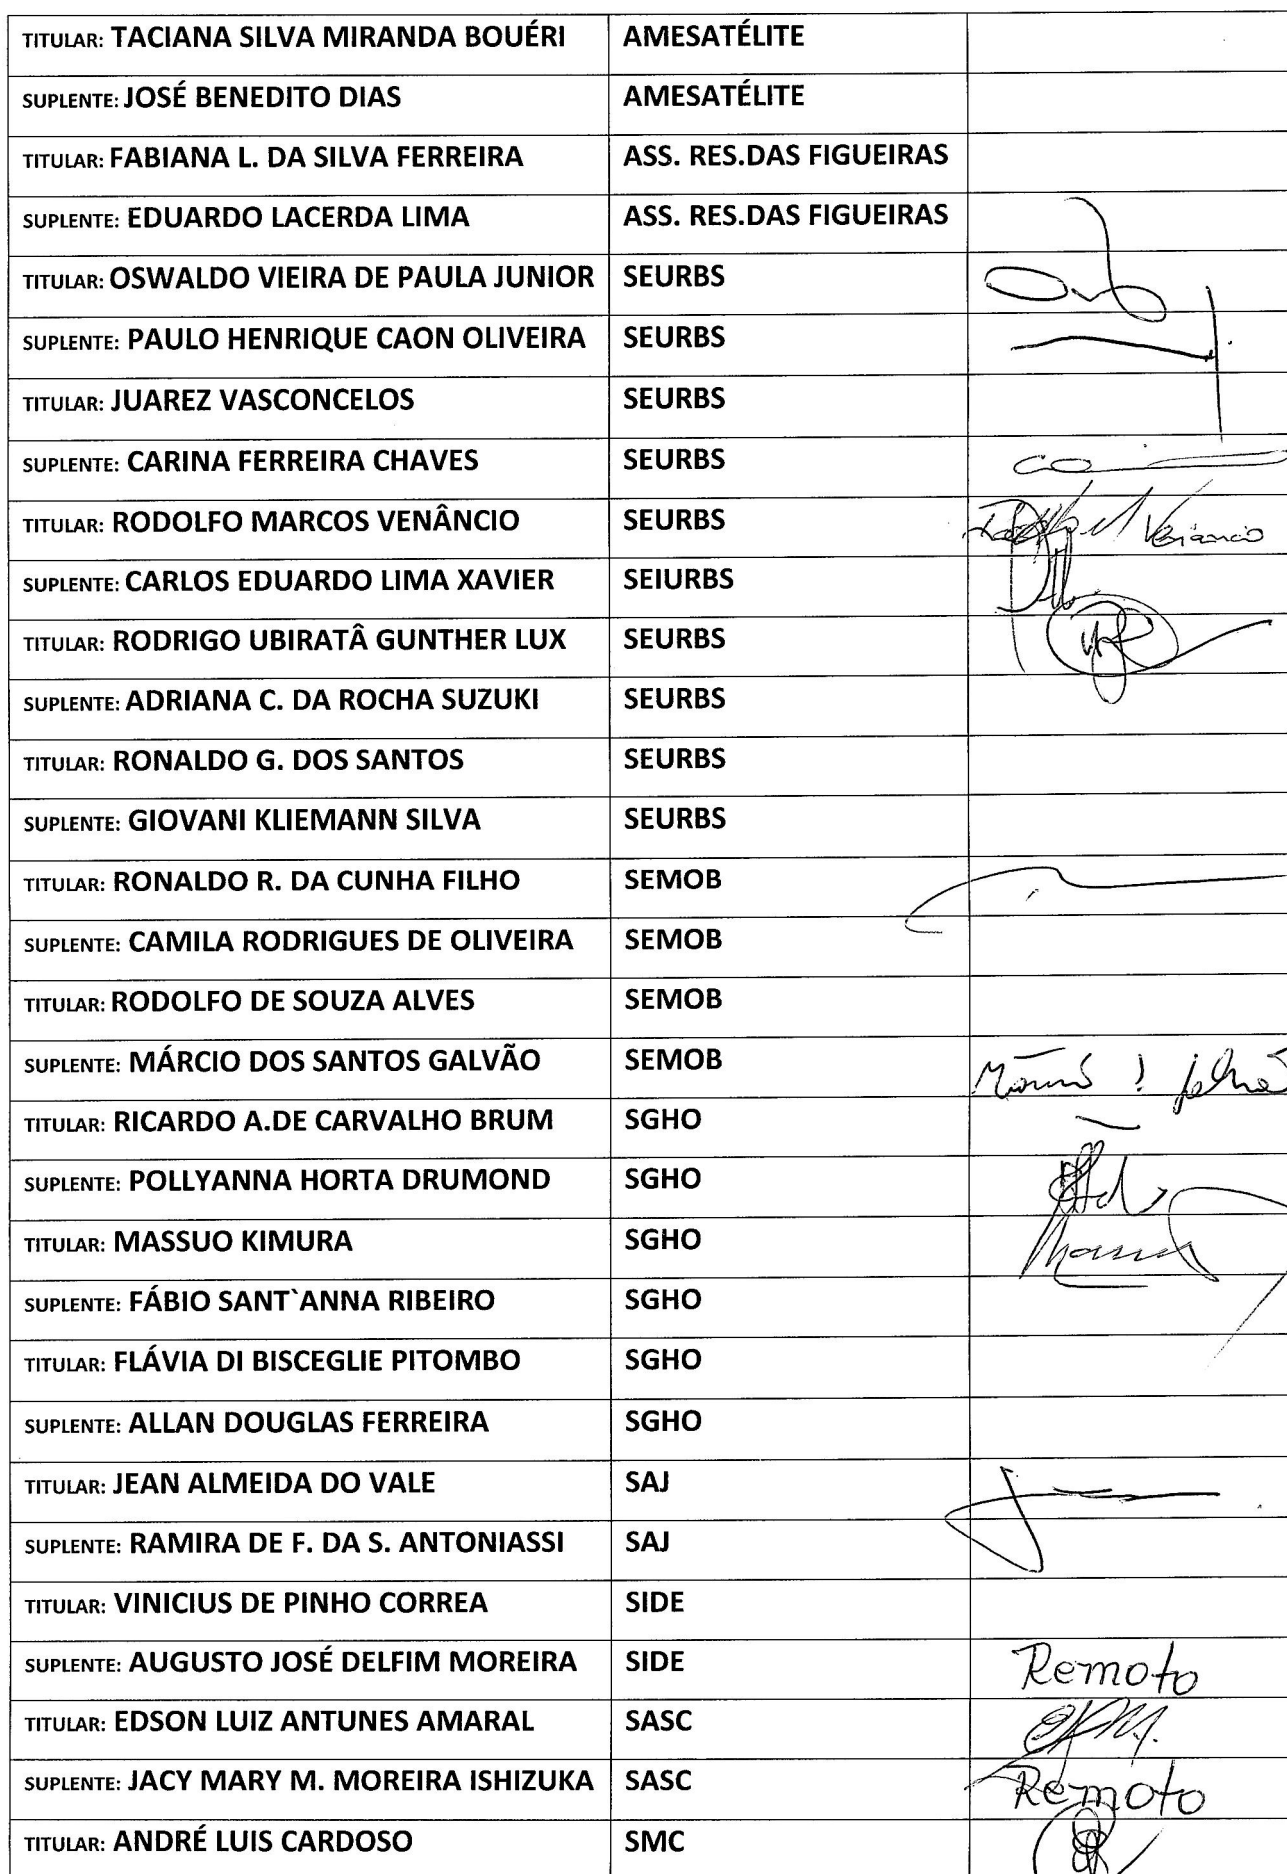 TITULAR: TACIANA SILVA MIRANDA BOUÉRI AMESATÉLITE
SUPLENTE: JOSÉ BENEDITO DIAS AMESATÉLITE
TITULAR: FABIANA L. DA SILVA FERREIRA ASS. RES.DAS FIGUEIRAS
SUPLENTE: EDUARDO LACERDA LIMA ASS. RES.DAS FIGUEIRAS
TITULAR: OSWALDO VIEIRA DE PAULA JUNIOR SEURBS
SUPLENTE: PAULO HENRIQUE CAON OLIVEIRA SEURBS
TITULAR: JUAREZ VASCONCELOS SEURBS
SUPLENTE: CARINA FERREIRA CHAVES SEURBS
TITULAR: RODOLFO MARCOS VENÂNCIO SEURBS Venâncio
SUPLENTE: CARLOS EDUARDO LIMA XAVIER SEIURBS
TITULAR: RODRIGO UBIRATÂ GUNTHER LUX SEURBS
SUPLENTE: ADRIANA C. DA ROCHA SUZUKI SEURBS
TITULAR: RONALDO G. DOS SANTOS SEURBS
SUPLENTE: GIOVANI KLIEMANN SILVA SEURBS
TITULAR: RONALDO R. DA CUNHA FILHO SEMOB
SUPLENTE: CAMILA RODRIGUES DE OLIVEIRA SEMOB
TITULAR: RODOLFO DE SOUZA ALVES SEMOB
SUPLENTE: MÁRCIO DOS SANTOS GALVÃO SEMOB
TITULAR: RICARDO A.DE CARVALHO BRUM SGHO
SUPLENTE: POLLYANNA HORTA DRUMOND SGHO
TITULAR: MASSUO KIMURA SGHO
SUPLENTE: FÁBIO SANT`ANNA RIBEIRO SGHO
TITULAR: FLÁVIA DI BISCEGLIE PITOMBO SGHO
SUPLENTE: ALLAN DOUGLAS FERREIRA SGHO
TITULAR: JEAN ALMEIDA DO VALE SAJ
SUPLENTE: RAMIRA DE F. DA S. ANTONIASSI SAJ
TITULAR: VINICIUS DE PINHO CORREA SIDE
SUPLENTE: AUGUSTO JOSÉ DELFIM MOREIRA SIDE Remoto
TITULAR: EDSON LUIZ ANTUNES AMARAL SASC
SUPLENTE: JACY MARY M. MOREIRA ISHIZUKA SASC Remoto
TITULAR: ANDRÉ LUIS CARDOSO SMC